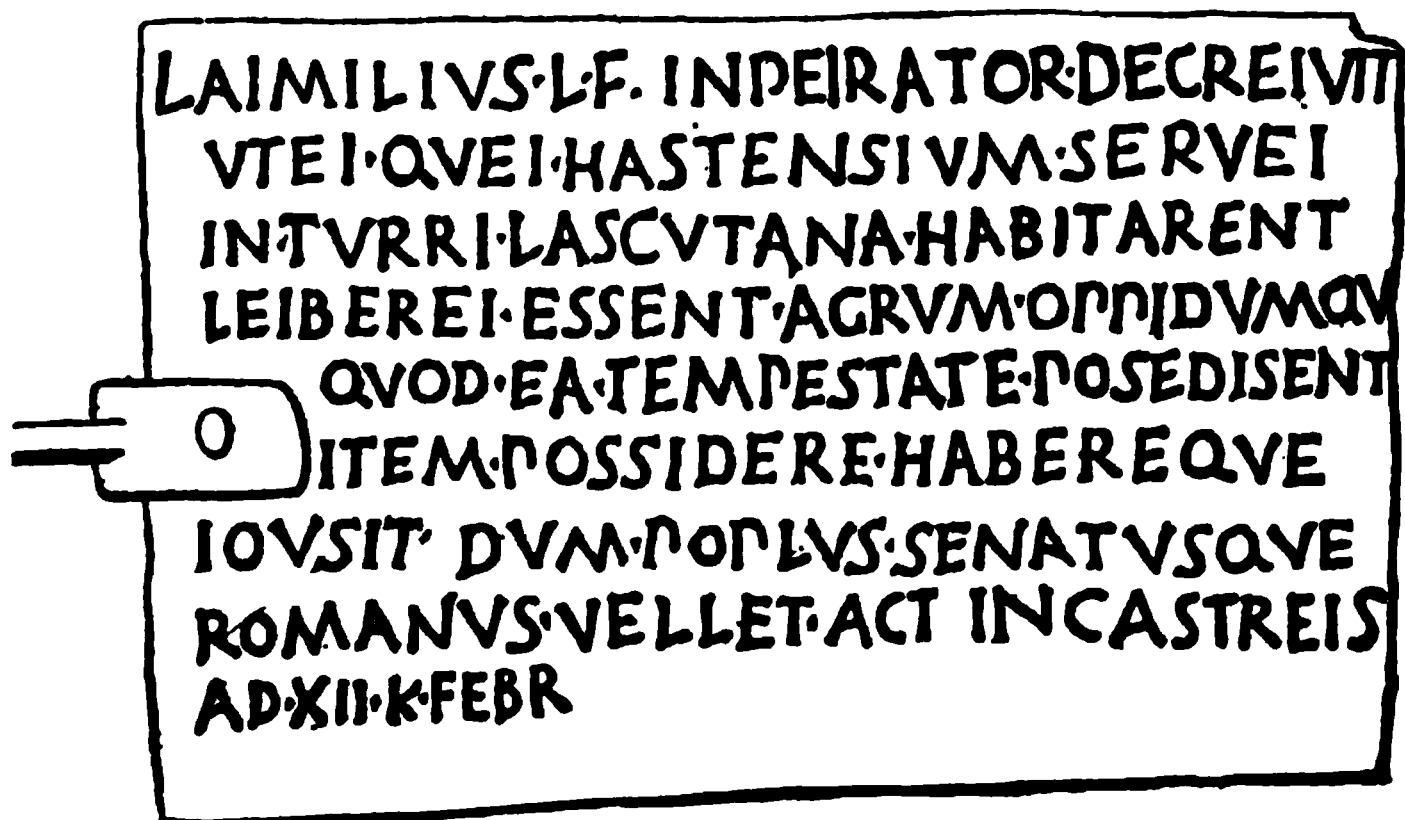 LAIMILIVS·L·F. INPEIRATOR·DECREIVIT
VTEI·QVEI·HASTENSIVM·SERVEI
IN·TVRRI·LASCVTANA·HABITARENT
LEIBEREI·ESSENT·AGRVM·OPPIDVMQV
QVOD·EA·TEMPESTATE·POSEDISENT
ITEM·POSSIDERE·HABEREQVE
IOVSIT· DVM·POPLVS·SENATVSQVE
ROMANVS·VELLET·ACT INCASTREIS
AD·XII·K·FEBR